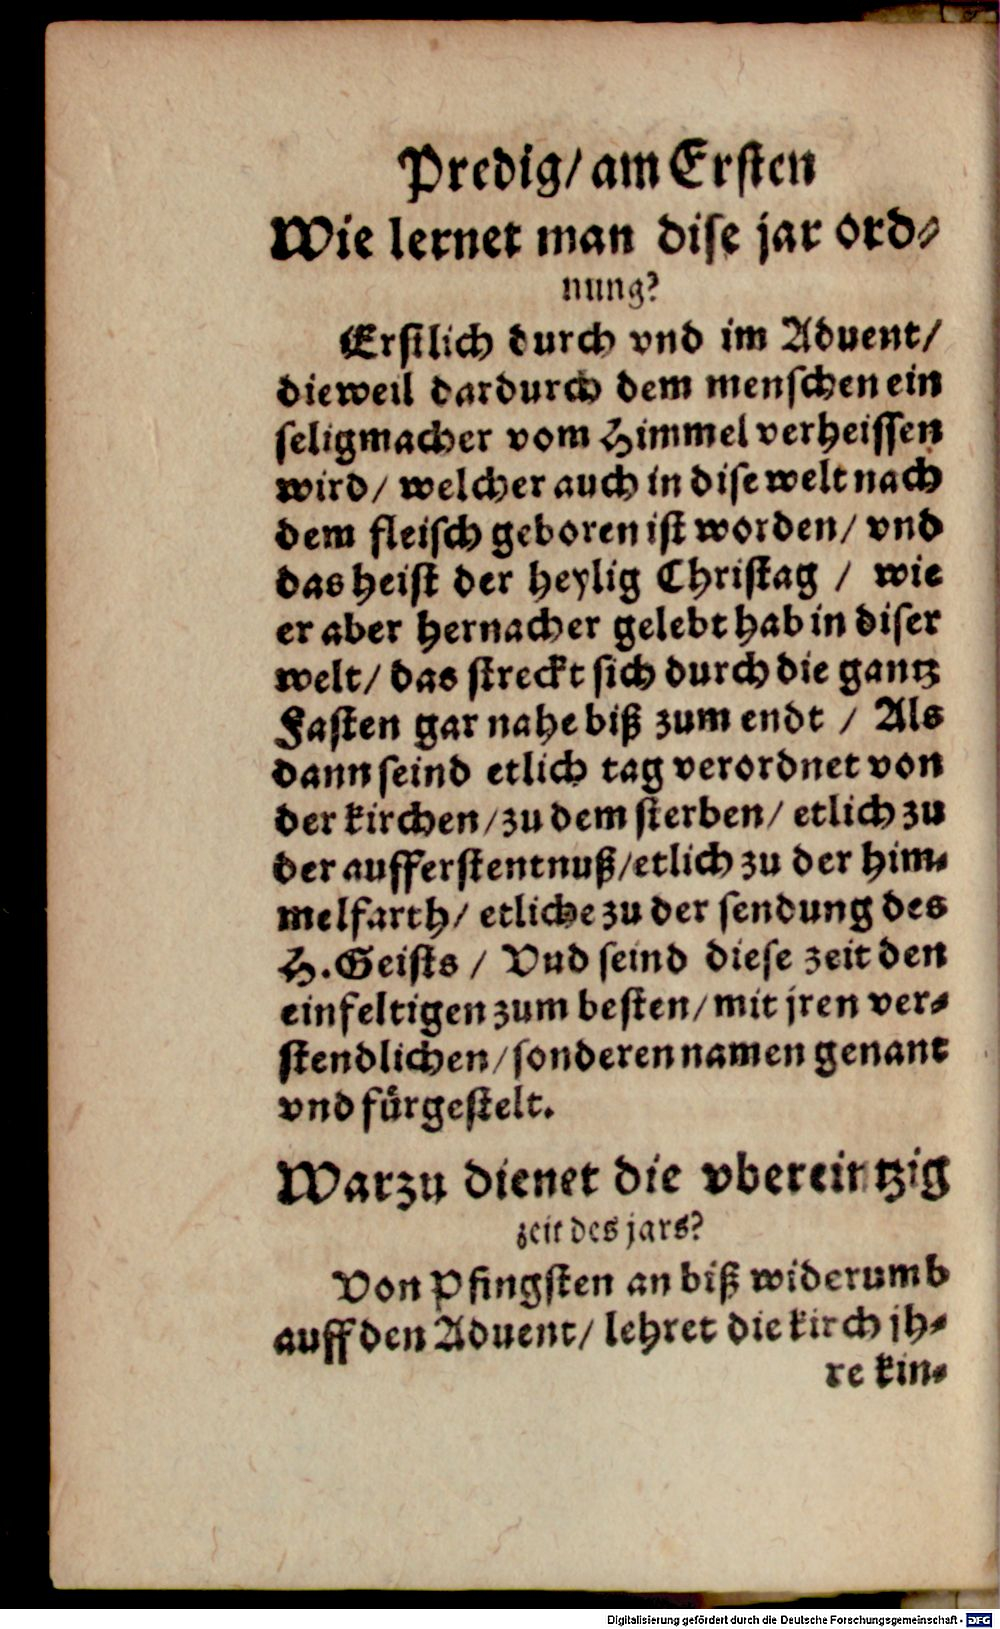 Predig/ am Ersten
Wie lernet man dise jar ord-
nung?
Erstlich durch vnd im Aduent/
dieweil dardurch dem menschen ein
seligmacher vom Himmel verheissen
wird/ welcher auch in dise welt nach
dem fleisch geboren ist worden/ vnd
das heist der heylig Christag / wie
er aber hernacher gelebt hab in diser
welt/ das streckt sich durch die gantz
Fasten gar nahe biß zum endt / Als
dann seind etlich tag verordnet von
der kirchen/ zu dem sterben/ etlich zu
der aufferstentnuß/ etlich zu der him-
melfarth/ etliche zu der sendung des
H. Geists / Vnd seind diese zeit den
einfeltigen zum besten/ mit jren ver-
stendlichen/ sonderen namen genant
vnd fürgestelt.
Warzu dienet die vbereintzig
zeit des jars?
Von Pfingsten an biß widerumb
auff den Aduent/ lehret die kirch jh-
re kin-
Digitalisierung gefördert durch die Deutsche Forschungsgemeinschaft - DFG